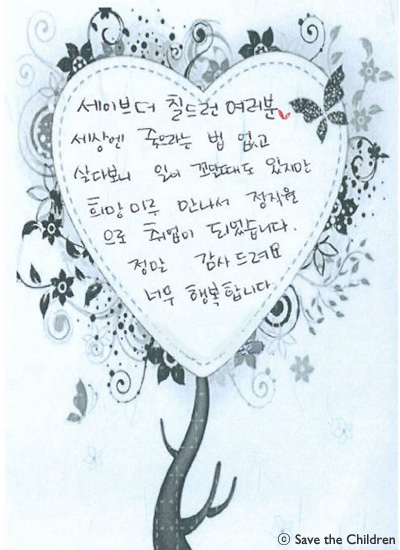 세이브더 칠드런 여러분
세상엔 죽으라는 법 없고
살다보니 일이 꼬일때도 있지만
희망이루 만나서 정직원
으로 취업이 되었습니다.
정말 감사드려요
너무 행복합니다
ⓒ Save the Children